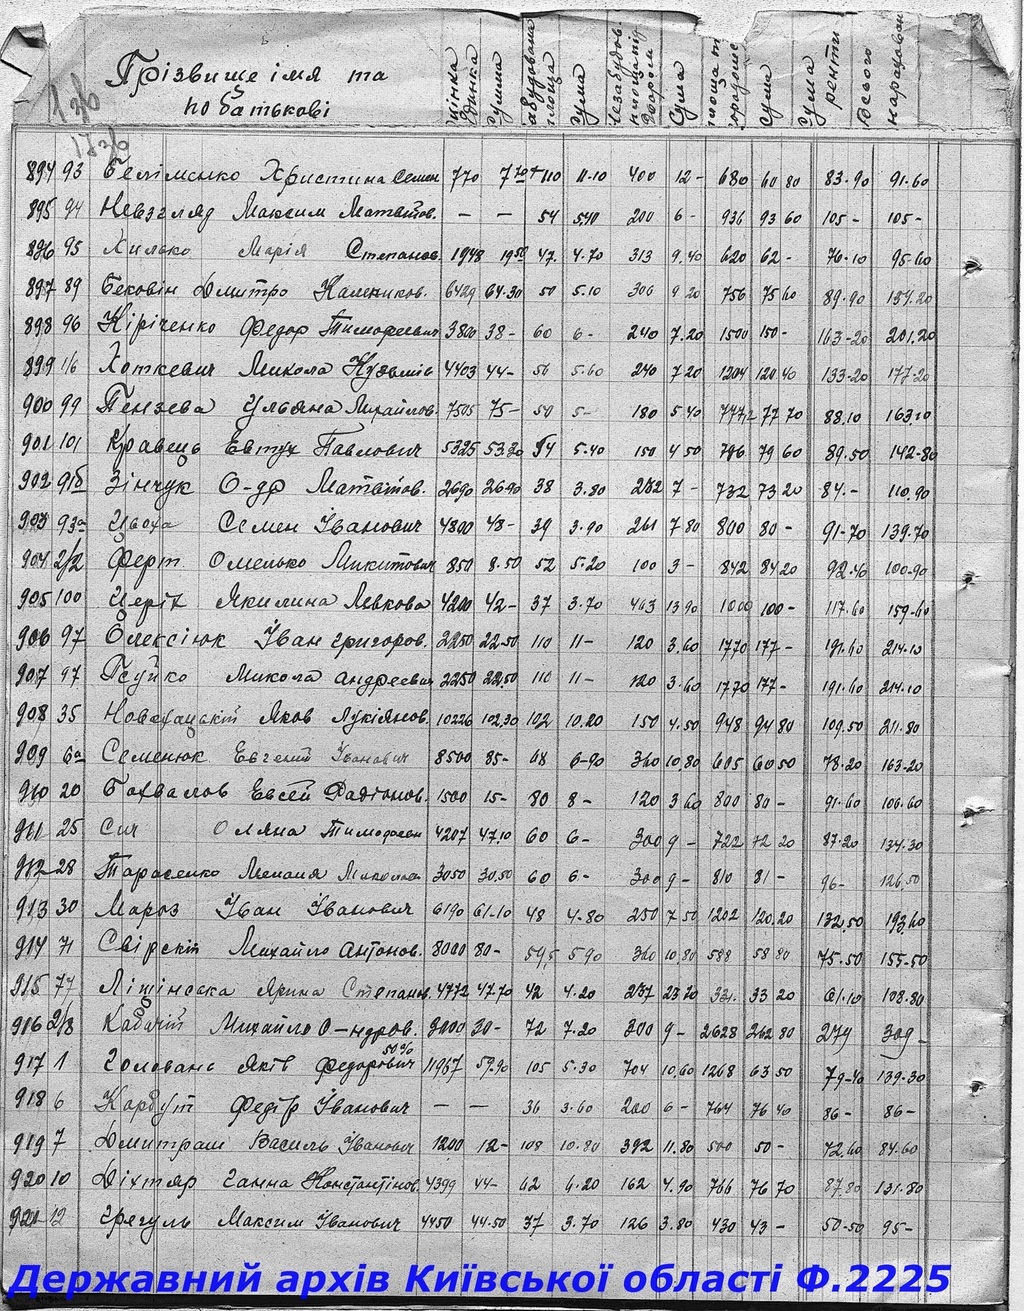 Прізвище імя та
по батькові
оцінка будинка
сумма
забудована площа
сума
незабудов. площа під двором
сума
площа
сума
сума ренти
всього нараховано
894 93 Беліменко Христина Семен 770 7 70 110 11-10 400 12- 680 60 80 83-90 91-60
895 94 Невзгляд Максим Мататов. — — 54 5.40 200 6- 936 93 60 105- 105-
896 95 Хилько Марія Степанов. 1948 19 50 47. 4.70 313 9.40 620 62- 76-10 95-60
897 89 Бековін Дмитро Калеников. 6429 64-30 50 5.10 306 9 20 756 75 60 89.90 154.20
898 96 Кіріченко Федор Тимофеевич 3800 38- 60 6- 240 7.20 1500 150- 163-20 201.20
899 Хоткевич Микола Кузьмів 4403 44- 56 5.60 240 7 20 1204 120 40 133-20 177-20
900 99 Пензева Ульяна Михайлов. 7505 75- 50 5- 180 5.40 777.2 77 70 88.10 163.10
901 101 Кравець Евтух Павлович 5325 53.30 54 5.40 150 4 50 796 79 60 89.50 142-80
902 91б Зінчук О-др Мататов. 2690 26 90 38 3.80 232 7- 732 73 20 84.- 110.90
903 93а Цьоха Семен Іванович 4800 48- 39 3.90 261 7 80 800 80- 91-70 139.70
904 2/2 Ферт Омелько Микитович 850 8.50 52 5.20 100 3- 842 84 20 92.40 100-90
905 100 Церіх Якилина Левкова 4200 42- 37 3.70 463 13 90 1000 100- 117.60 159-60
906 97 Олексіюк Іван григоров. 2250 22-50 110 11- 120 3.60 1770 177- 191.60 214.10
907 97 Псуйко Микола андреевич 2250 22.50 110 11- 120 3-60 1770 177- 191.60 214.10
908 35 Яков Лукіянов. 10226 102.30 102 10.20 150 4.50 948 94 80 109.50 211.80
909 6а Семенюк Евгений Іванович 8500 85- 68 6-80 360 10.80 605 60 50 78-20 163-20
910 20 Бахвалов Евсей Радіонов. 1500 15- 80 8- 120 3 60 800 80- 91.60 106.60
911 25 Сич Оляна Тимофеен 4707 47.10 60 6- 300 9- 722 72 20 87-20 134.30
912 28 Тарасенко Мелания Миколаев 3050 30.50 60 6- 300 9- 810 81- 96- 126.50
913 30 Мароз Іван Іванович 6190 61-10 48 4-80 250 7 50 1202 120.20 132.50 193.60
914 71 Свірскій Михайло антонов. 8000 80- 59,5 5 90 360 10.80 588 58 80 75-50 155-50
915 77 Ліщінська Ярина Степанов. 4772 47.70 42 4.20 33 20 61.10 108.80
916 2/3 Кабачій Михайло О-ндров. 3000 30- 72 7.20 300 9- 2628 262 80 279 309-
50%
917 1 Головань Яків Федорович 11967 59.90 105 5.30 704 10.60 1268 63 50 79-40 139.30
918 6 Карбут Федір Іванович — — 36 3.60 200 6- 764 76 40 86- 86-
919 7 Дмитраш Василь Іванович 1200 12- 108 10.80 392 11.80 500 50- 72.60 84.60
920 10 Діхтяр Ганна Константінов. 4399 44- 62 6.20 162 4.90 766 76 70 87.80 131.80
921 12 Грегуль Максим Іванович 4450 44.50 37 3.70 126 3.80 430 43- 50-50 95-
Державний архів Київської області Ф.2225